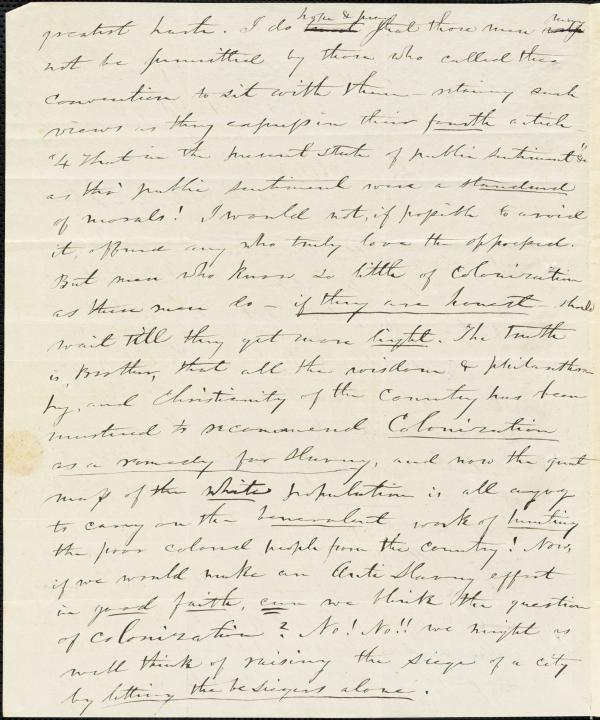 greatest haste. I do hope & pray that those men may
not be permitted by those who called the
convention to sit with them — retaining such
views as they express in their fourth article —
"4 That in the present state of public sentiment" &c
as tho' public sentiment were a standard
of morals! I would not, if possible to avoid
it, offend any who truly love the oppressed.
But men who know so little of Colonization
as these men do — if they are honest — should
wait till they get more light. The truth
is, Brother, that all the wisdom & philanthro
py, and Christianity of the country has been
mustered to recommend Colonization
as a remedy for Slavery, and now the great
mass of the white population is all agog
to carry on the benevolent work of hunting
the poor colored people from the country! Now,
if we would make an Anti Slavery effort
in good faith, can we blink the question
of colonization? No! No!! we might as
well think of raising the siege of a city
by letting the besiegers alone.